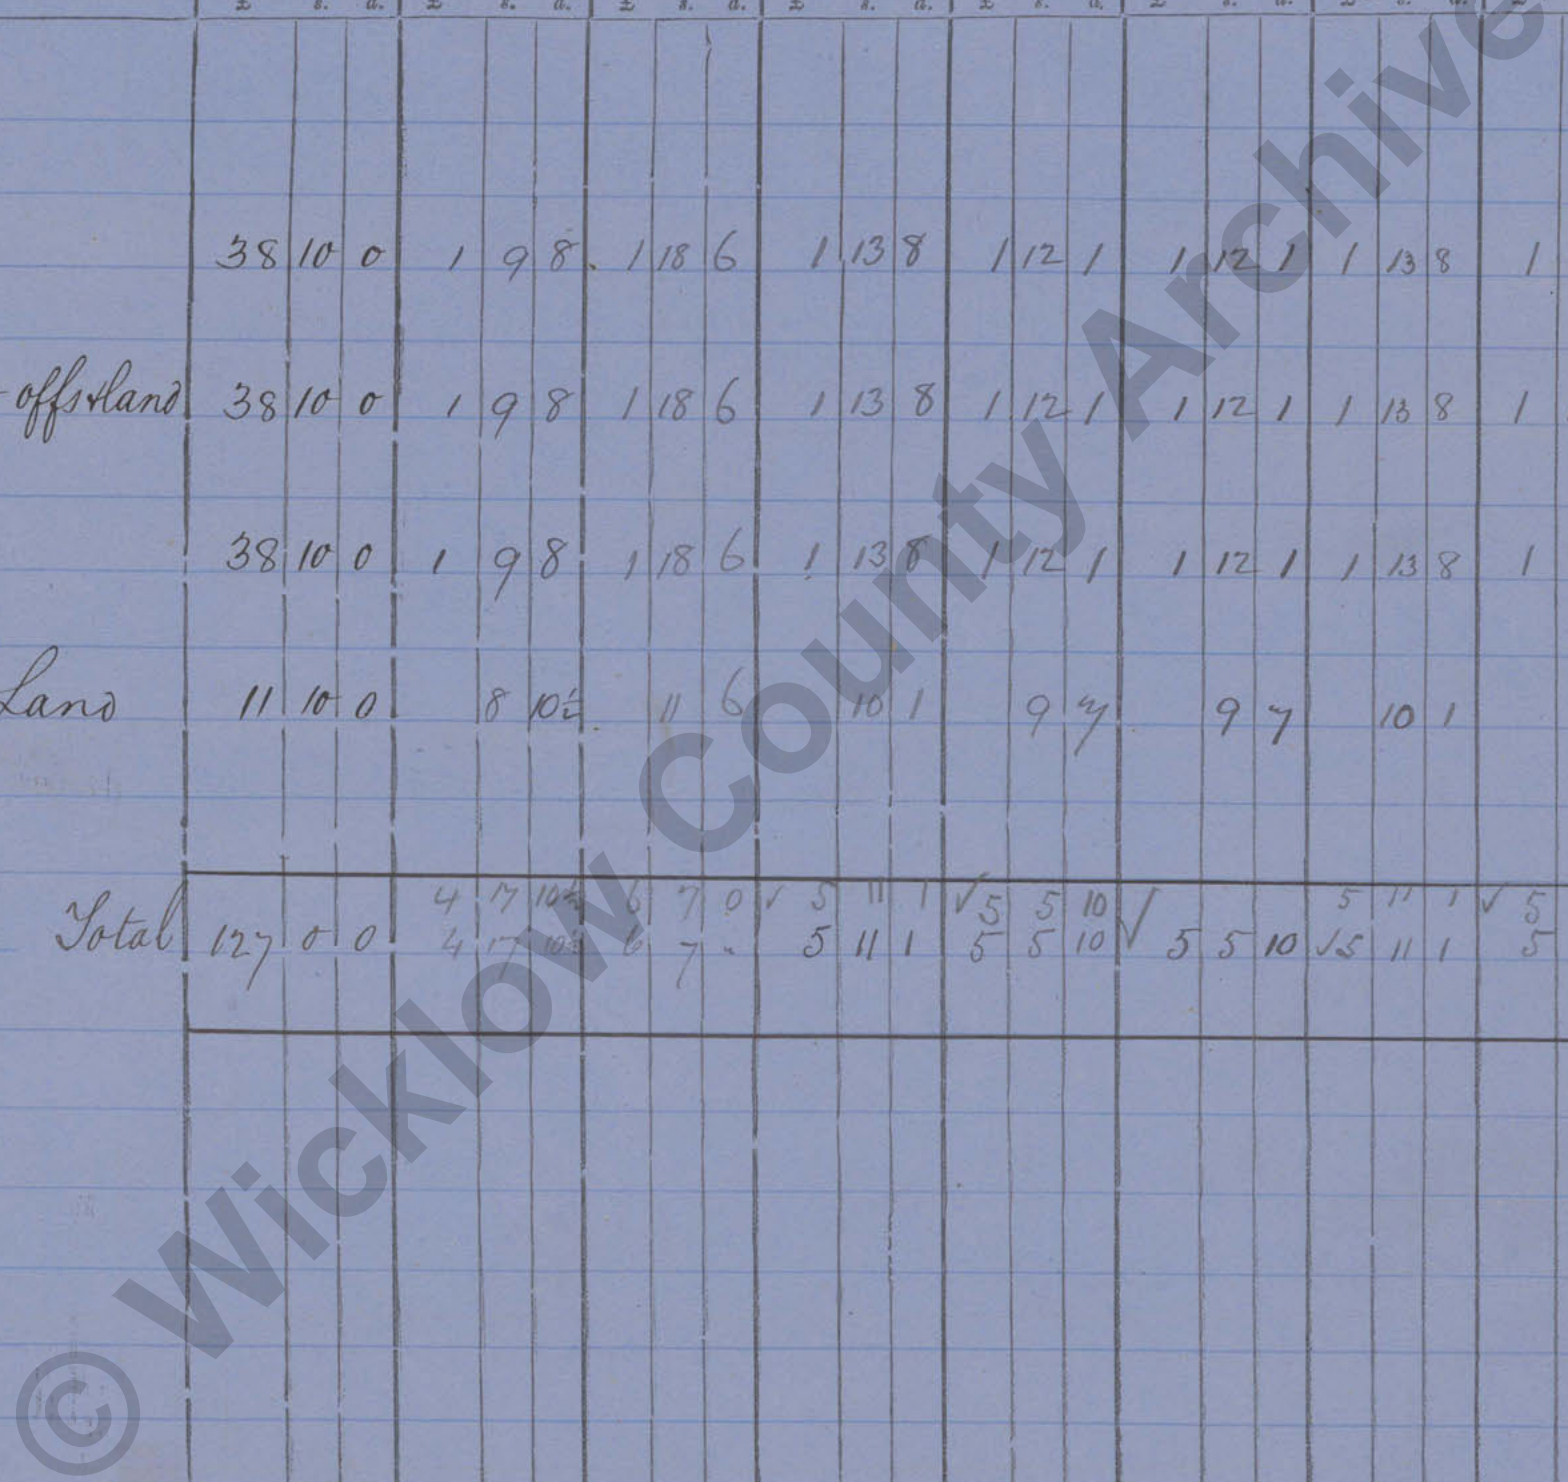 £ s. d. £ s. d. £ s. d. £ s. d. £ s. d. £ s. d. £ s. d. £
38 10 0 1 9 8 1 18 6 1 13 8 1 12 1 1 12 1 1 13 8 1
offs & land 38 10 0 1 9 8 1 18 6 1 13 8 1 12 1 1 12 1 1 13 8 1
38 10 0 1 9 8 1 18 6 1 13 8 1 12 1 1 12 1 1 13 8 1
Land 11 10 0 8 10½ 11 6 10 1 9 7 9 7 10 1
4 17 10½ 6 7 0 √ 5 11 1 √ 5 5 10 √ 5 11 1 √ 5
Total 127 0 0 4 17 10½ 6 7 - 5 11 1 5 5 10 5 5 10 √ 5 11 1 5
© Wicklow County Archive